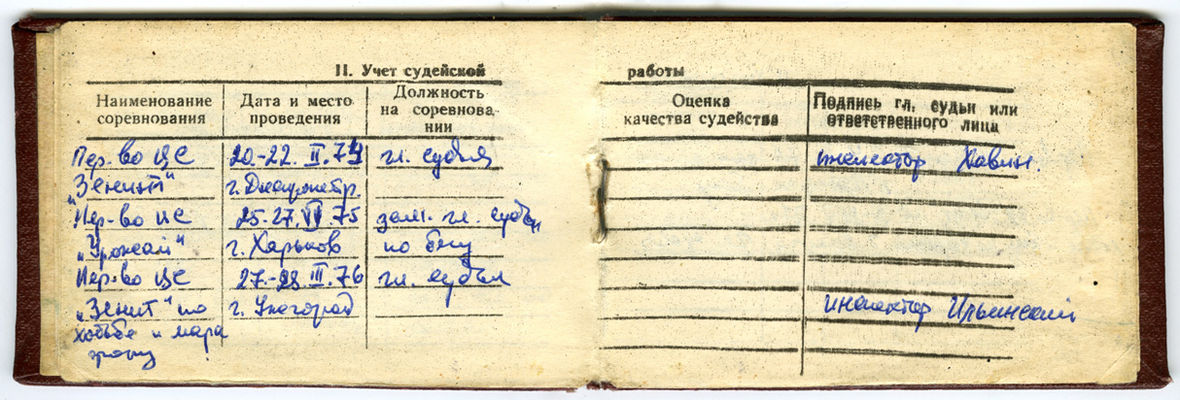 II. Учет судейской работы
Наименование соревнования
Дата и место проведения
Должность на соревнова-нии
Оценка качества судейства
Подпись гл. судьи или ответственного лица
Пер-во ЦС 20-22. II. 74 гл. судья инспектор Хавин.
"Зенит" г. Днепропетр.
Пер-во ЦС 25-27. VI. 75 зам. гл. судьи
"Урожай" г. Харьков по бегу
Пер-во ЦС 27-28. III. 76 гл. судья
"Зенит" по г. Ужгород инспектор Ильинский
ходьбе и мара
фону